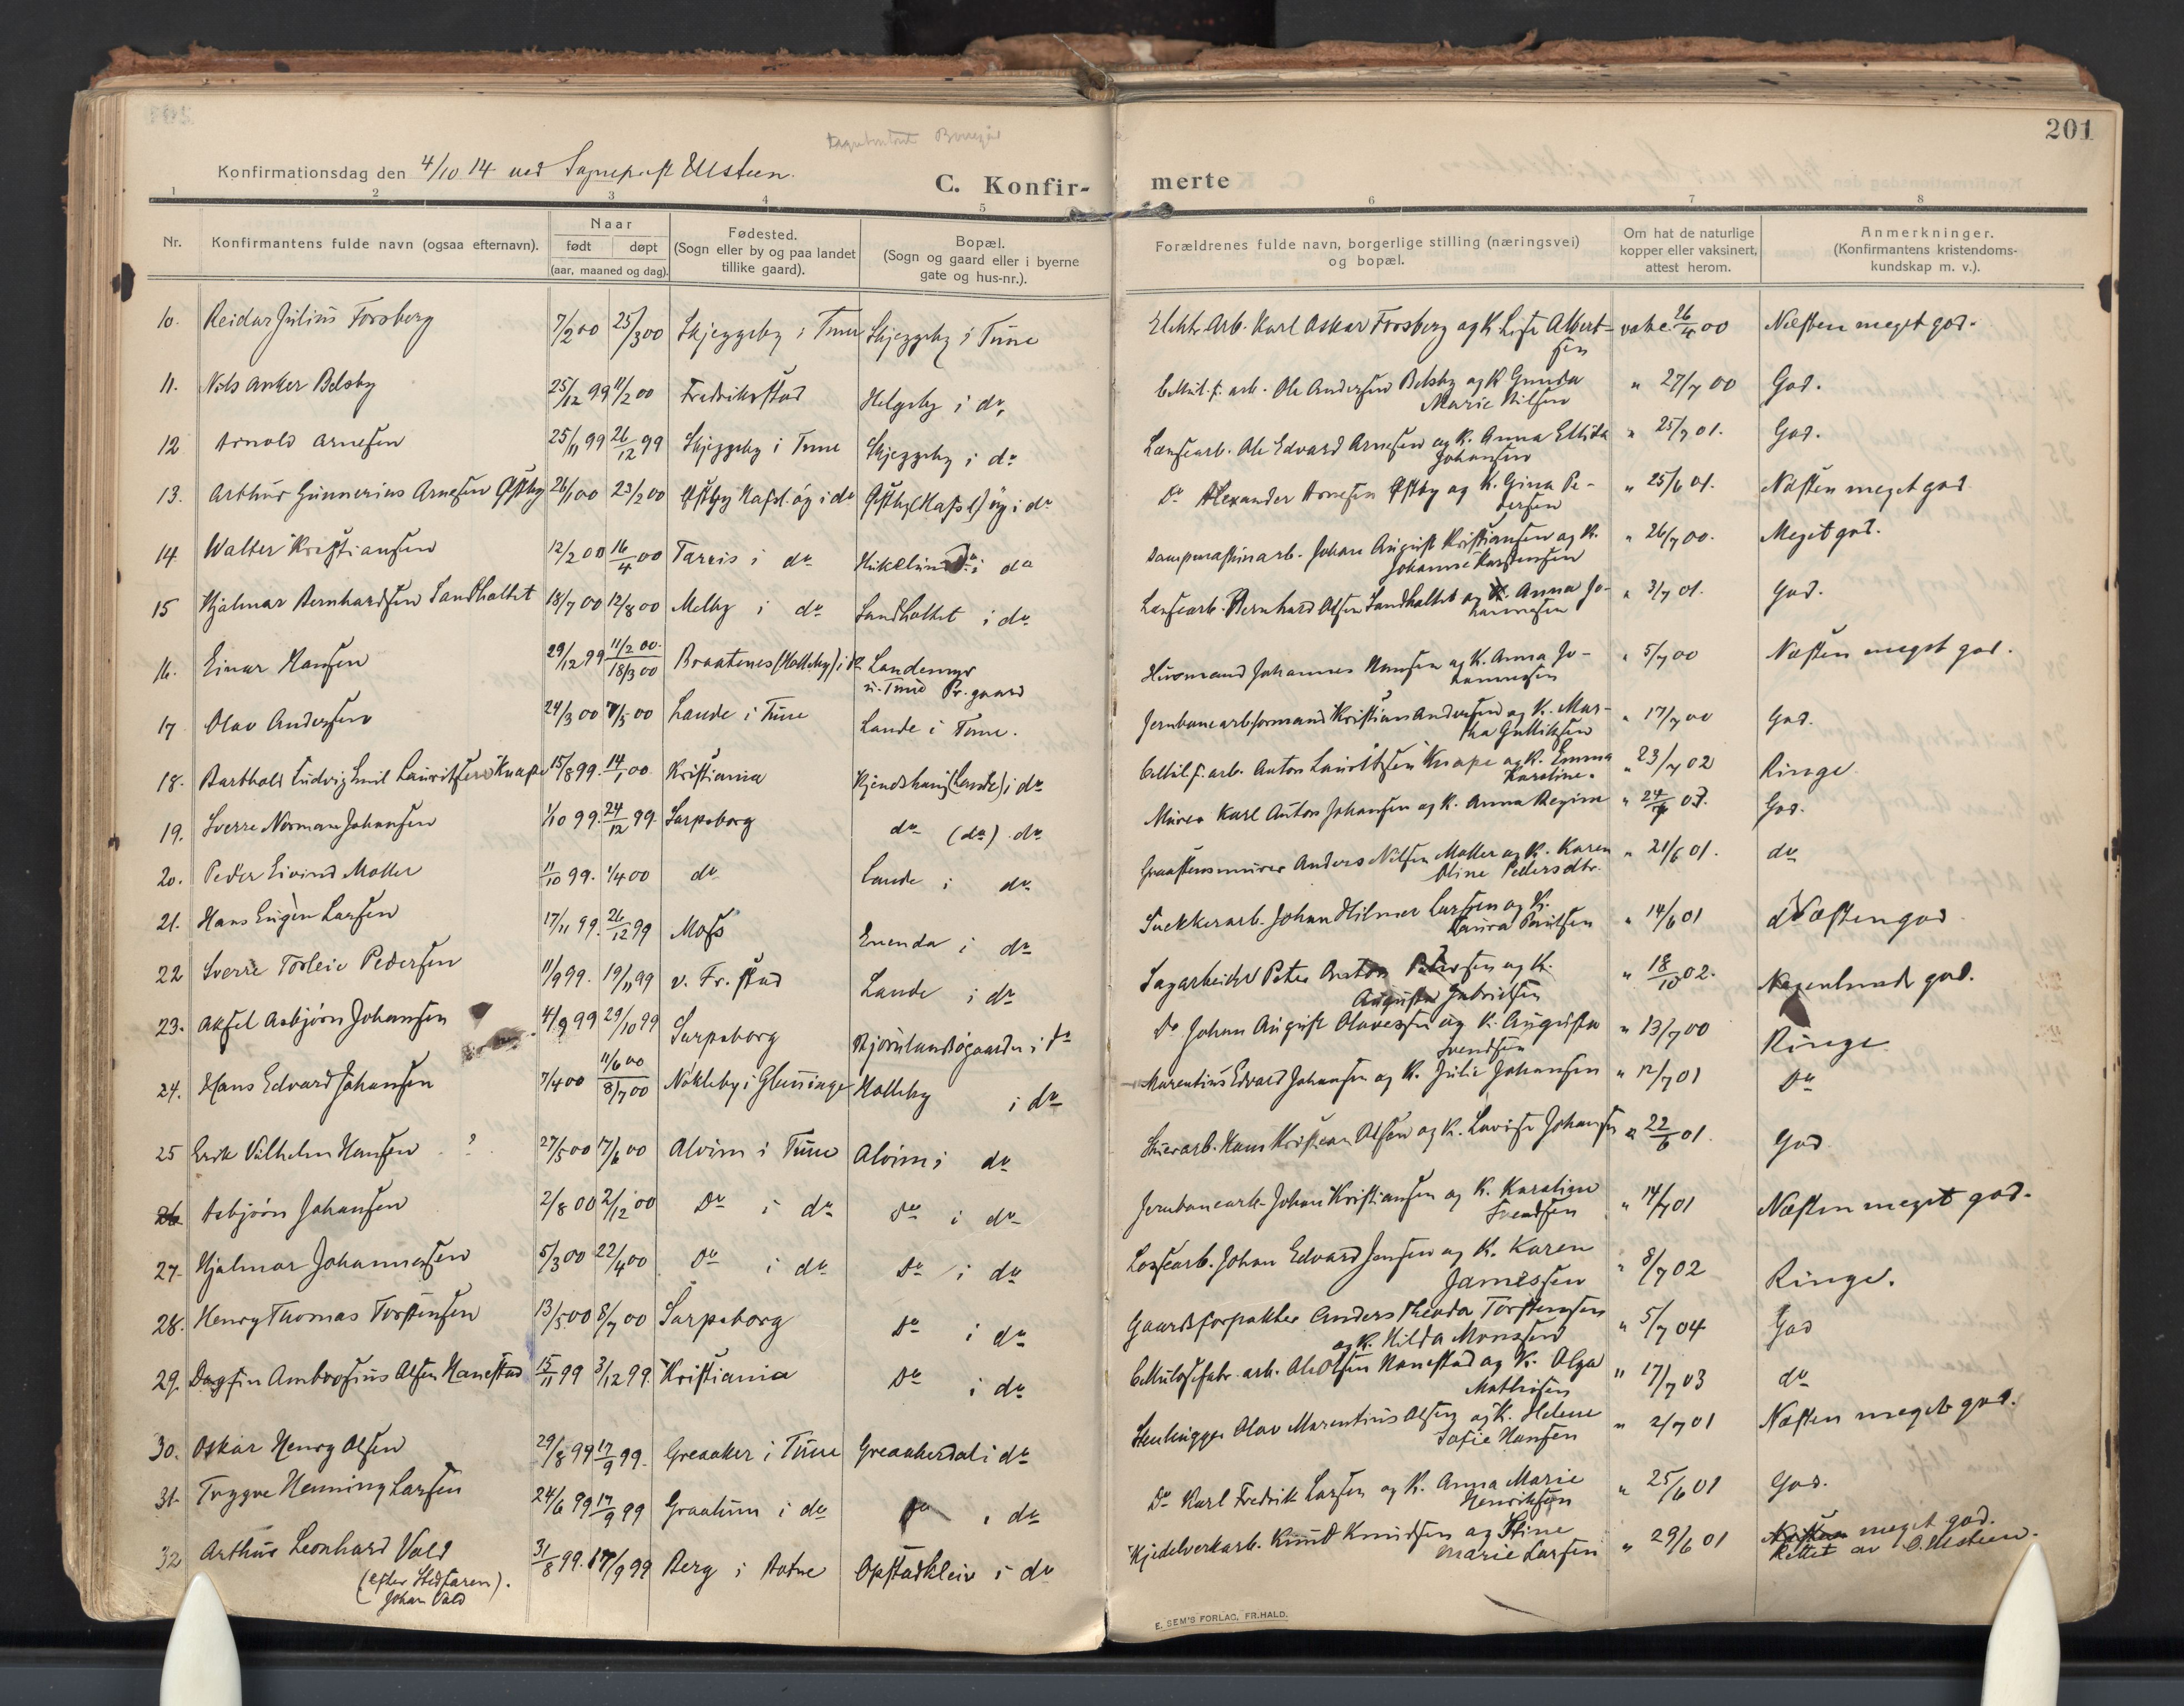 201
Konfirmationsdag den 4/10 14 ved Sogneprest Ellsteen.
C. Konfir-
merte
1 2 3 4 5 6 7 8
Nr.
Konfirmantens fulde navn (ogsaa efternavn).
Naar
født døpt
(aar, maaned og dag).
Fødested.
(Sogn eller by og paa landet
tillike gaard).
Bopæl.
(Sogn og gaard eller i byerne
gate og hus-nr.).
Forældrenes fulde navn, borgerlige stilling (næringsvei)
og bopæl.
Om hat de naturlige
kopper eller vaksinert,
attest herom.
Anmerkninger.
(Konfirmantens kristendoms-
kundskap m. v.).
10. Reidar Julius Forsberg 7/2 00 25/3 00 Skjeggeby i Tune Skjeggeby i Tune Elektr. Arb. Karl Oskar Forsberg og K. Lise Albert- vakc. 26/4 00 Næsten meget god.
sen
11. Nils Anker Belsby 25/12 99 11/2 00 Fredrikstad Helgeby i do Cellul. f. arb. Ole Andersen Belsby og K Gunda " 27/7 00 God.
Marie Nilsen
12 Arnold Arnesen 25/11 99 26/12 99 Skjeggeby i Tune Skjeggeby i do Lænsearb. Ole Edvard Arnesen og K. Anna Elida " 25/7 01. God.
Johansen
13. Arthur Gunnerius Arnesen Østby 26/1 00 23/2 00 Østby Hafsl. øg i do Østby (Hafsl) øg i do Do Alexander Arnesen Østby og K. Gina Pe- " 25/6 01. Næsten meget god
dersen
14 Walter Kristiansen 12/2 00 16/4 00 Tarris i do i do Dampmaskinarb. Johan August Kristiansen og K. " 26/7 00. Meget god.
Johanne Karstensen
15 Hjalmar Bernhardsen Sandholtet 18/7 00 12/8 00 Melby i do Sandholtet i do Lænsearb. Bernhard Olsen Sandholtet og K. Anna Jo- " 3/7 01. God.
hannesen
16. Einar Hansen 29/12 99 11/2 00. Braatenes (Halleby) i do Landemyr Husmand Johannes Hansen og K. Anna Jo- " 5/7 00 Næsten meget god.
18/3 00 u. Tune Pr. gaard hannesen
17 Olav Andersen 24/3 00 7/5 00 Lande i Tune Lande i Tune. Jernbanearb.formand Kristian Andersen og K. Mar- " 17/7 00 God.
tha Gulliksen
18. Barthold Ludvig Emil Lauritsen Knape 15/8 99. 14/1 00 Kristiania Kjendshaug (Lande) i do Cellul. f. arb. Anton Lauritsen Knape og K. Emma " 23/7 02 Ringe
Karoline.
19. Sverre Norman Johansen 1/10 99. 24/12 99 Sarpsborg do (do) do Murer Karl Anton Johansen og K. Anna Regine " God.
20. Peder Eivind Moller 11/10 99. 1/4 00 do Lande i do Graastensmurer Anders Nilsen Moller og K. Karen " 21/6 01. do
Oline Pedersdtr.
21. Hans Eugen Larsen 17/11 99. 26/12 99 Moss Enenda i do Snekkerarb. Johan Hilmer Larsen og K. " 14/6 01 Næsten god
Laura Paulsen
22 Sverre Torleiv Pedersen 11/9 99. 19/11 99 v. Fr.stad Lande i do Sagarbeider Peter Anton Pedersen og K. " 18/10 02. Nogenlunde god.
Augusta Gabrielsen
23. Aksel Asbjørn Johansen 4/9 99 29/10 99 Sarpsborg Bjørnlandsgaarden i do Do Johan August Olavessen og K. Augusta " 13/7 00 Ringe
Svendsen
24. Hans Edvard Johansen 7/4 00 11/6 00 Nøkleby i Glemminge Halleby i do Marentius Edvard Johansen og K. Julie Johansen " 12/7 01 Do
8/7 00
25 Erik Vilhelm Hansen ? 27/5 00 17/6 00 Alvim i Tune Alvim i do Skurarb. Hans Kristian Olsen og K. Lovise Johansen " 22/6 01. God
26 Asbjørn Johansen 2/8 00 2/12 00 Do i do Do i do Jernbanearb. Johan Kristiansen og K. Karoline " 14/7 01 Næsten meget god.
Svendsen
27. Hjalmar Johannessen 5/3 00 22/4 00 Do i do Do i do Losearb. Johan Edvard Jensen og K. Karen " 8/7 02 Ringe.
Jamessen
28. Henry Thomas Torstensen 13/5 00 8/7 00 Sarpsborg Do i do Gaardsforpakter Anders Theodor Torstensen " 5/7 04 God
og K. Hilda Monssen
29. Dagfin Ambrosius Olsen Hanestad 15/11 99 3/12 99. Kristiania Do i do Cellulosefabr. arb. Ole Olsen Hanestad og K. Olga " 17/7 03 do
Mathisen
30. Oskar Henry Olsen 29/8 99 17/9 99. Greaaker i Tune Greaakerdal i do Stenhugger Olav Marentius Olsen og K. Helene " 2/7 01 Næsten meget god.
Sofie Hansen
31. Trygve Henning Larsen 24/6 99 17/9 99 Graalum i do Do i do Do Karl Fredrik Larsen og K. Anna Marie " 25/6 01 God.
Henriksen
32 Arthur Leonhard Vold 31/8 99. 17/9 99 Berg i Aadne Opstadkleiv i do Kjedelverkarb. Knud Knudsen og Stine " 29/6 01 Næsten meget god.
(efter Stedfaren). Marie Larsen Rettet av O. Ellsteen.
Johan Vold
E. SEM'S FORLAG, FR.HALD.